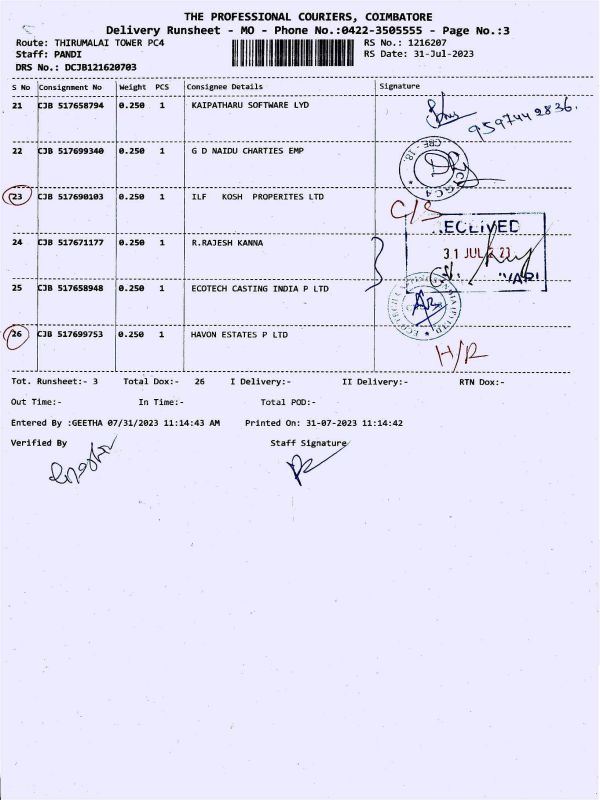 THE PROFESSIONAL COURIERS, COIMBATORE
Delivery Runsheet - MO - Phone No.:0422-3505555 - Page No.:3
Route: THIRUMALAI TOWER PC4 RS No.: 1216207
Staff: PANDI RS Date: 31-Jul-2023
DRS No.: DCJB121620703
S No Consignment No Weight PCS Consignee Details Signature
21 CJB 517658794 0.250 1 KAIPATHARU SOFTWARE LYD
9597442836.
22 CJB 517699340 0.250 1 G D NAIDU CHARTIES EMP
CBE - 18.
23 CJB 517690103 0.250 1 ILF KOSH PROPERITES LTD
C/S
ECLIVED
24 CJB 517671177 0.250 1 R.RAJESH KANNA
31 JUL
25 CJB 517658948 0.250 1 ECOTECH CASTING INDIA P LTD
26 CJB 517699753 0.250 1 HAVON ESTATES P LTD
H/R
Tot. Runsheet:- 3 Total Dox:- 26 I Delivery:- II Delivery:- RTN Dox:-
Out Time:- In Time:- Total POD:-
Entered By :GEETHA 07/31/2023 11:14:43 AM Printed On: 31-07-2023 11:14:42
Verified By Staff Signature